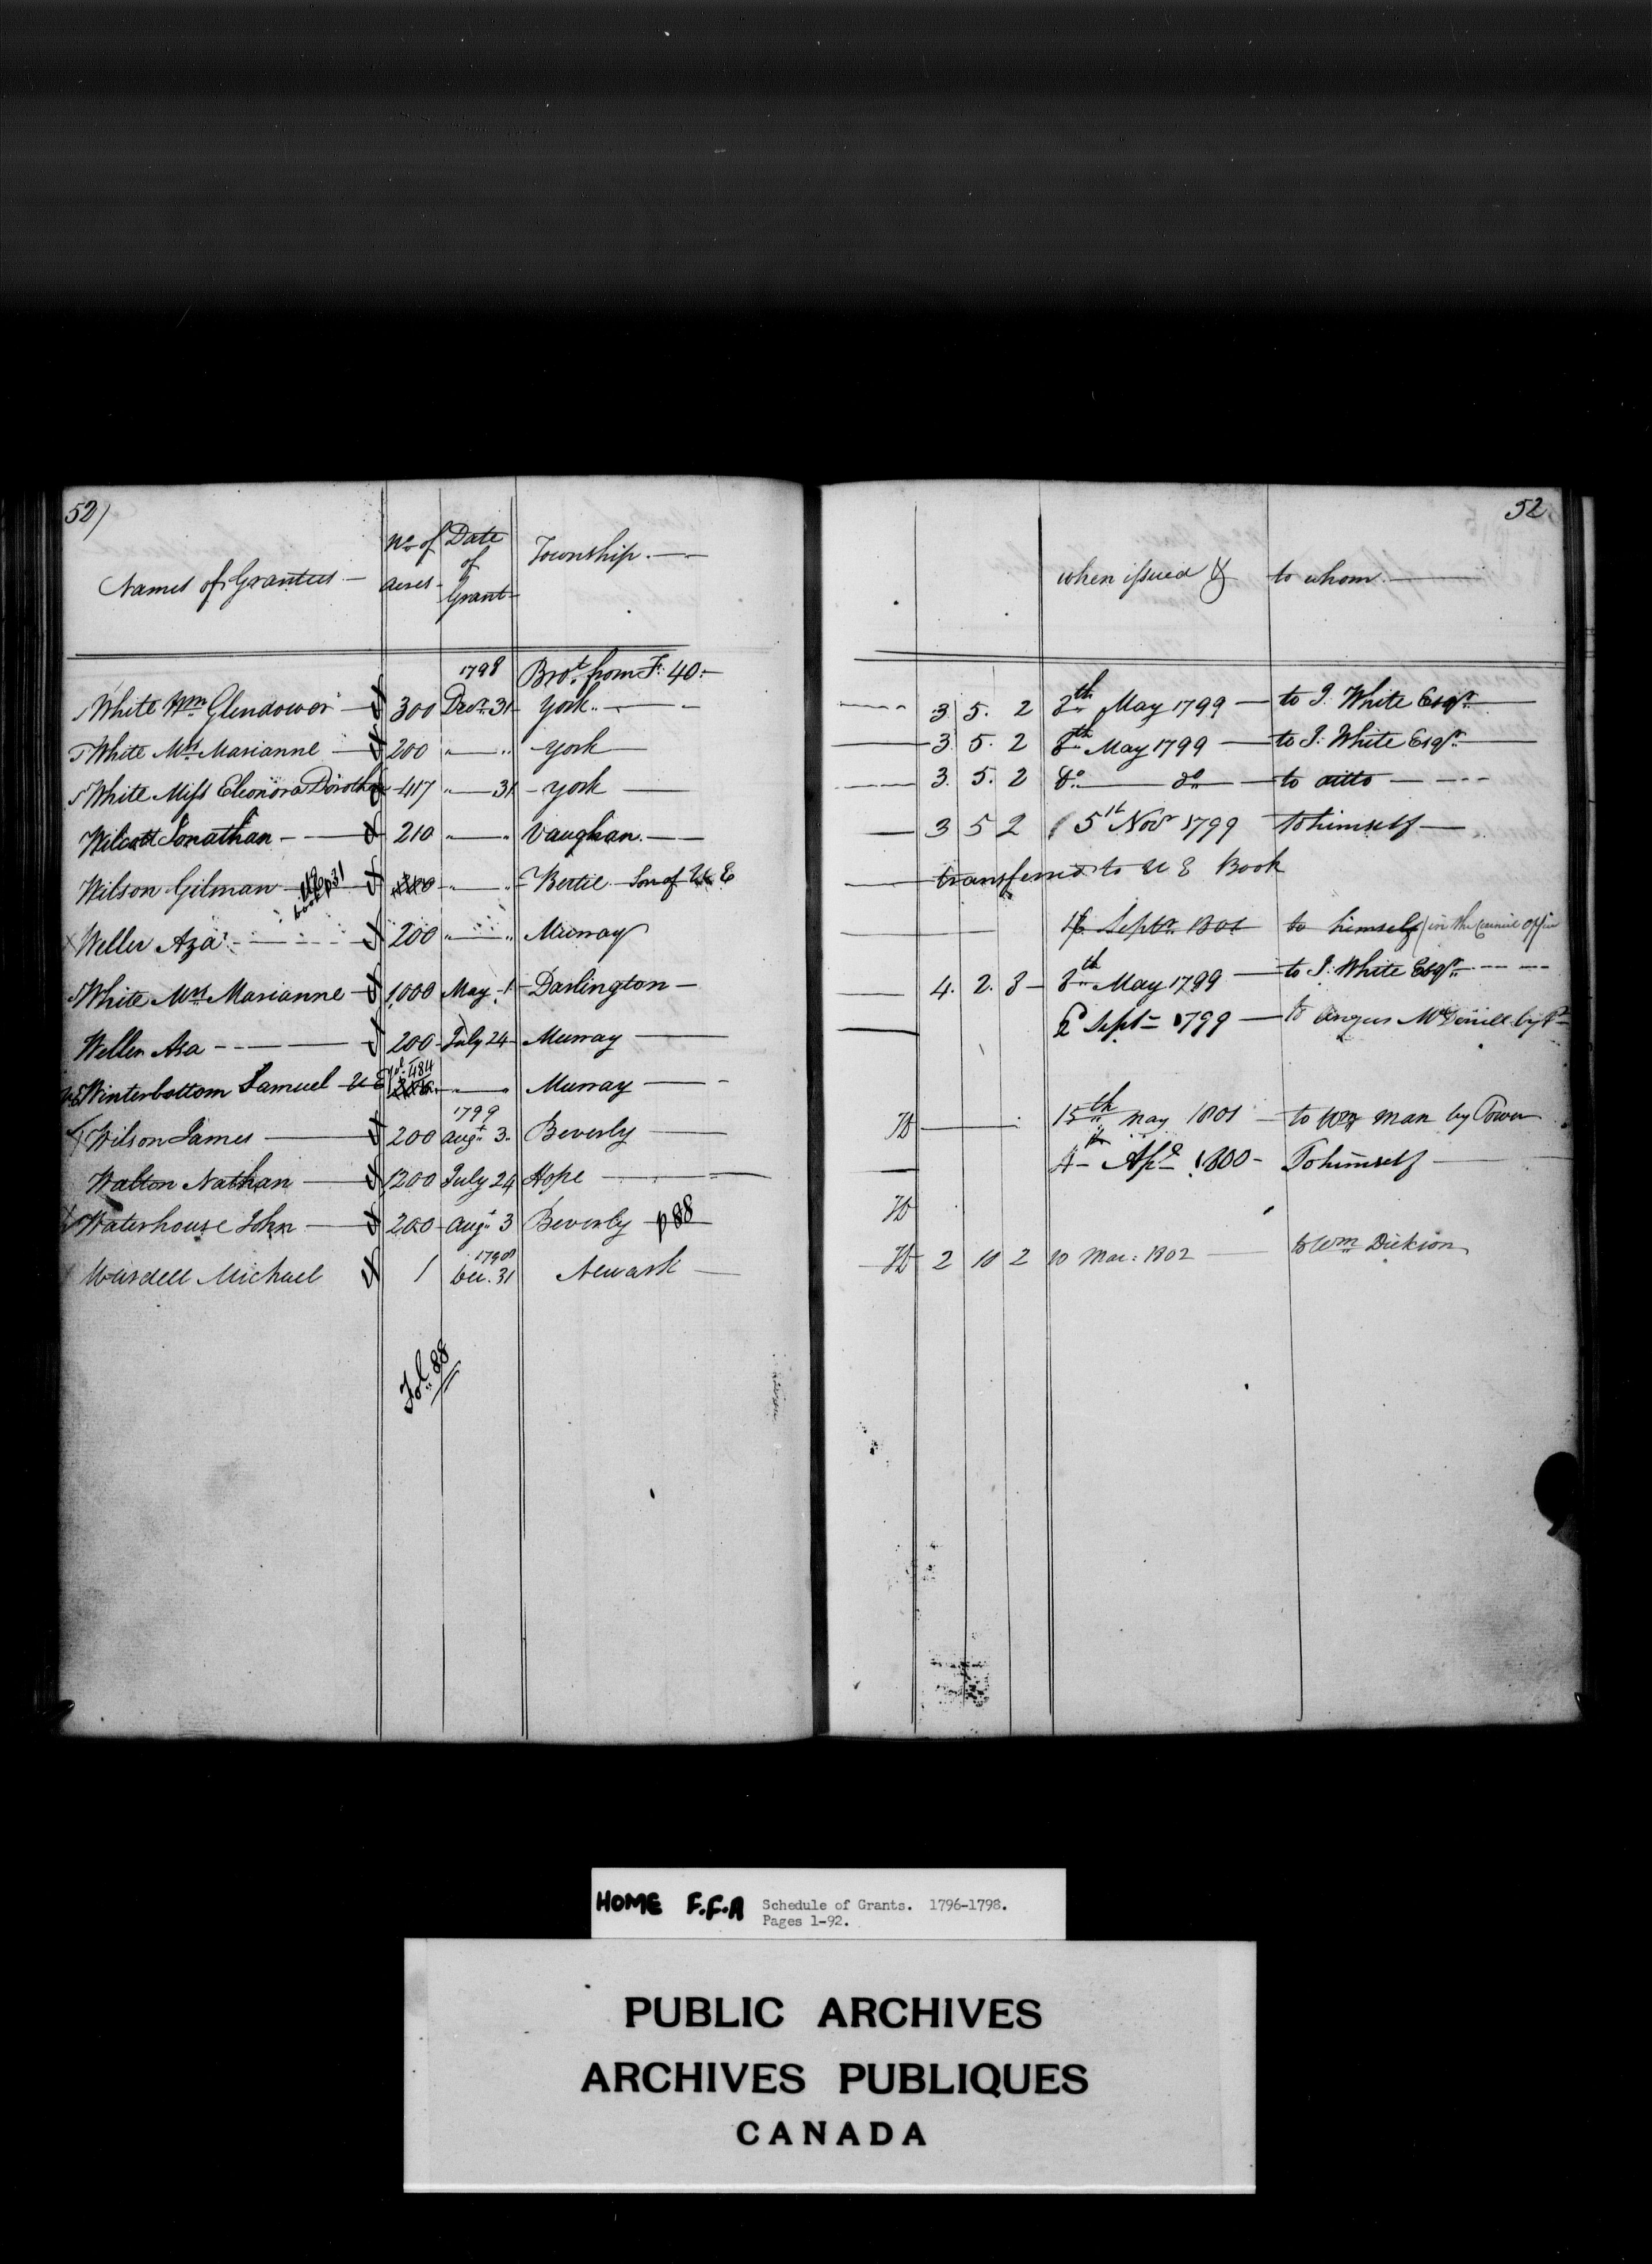 52/
Names of Grantees
No. of acres
Date of Grant
Township.
1798 Brot. from F. 40.
White Wm. Glendower 300 Decr. 31 York
White Mrs. Marianne 200 " " York
White Miss Eleonora Dorothea 417 " 31 York
Wilcott Jonathan 210 " " Vaughan
Wilson Gilman UE book p31 200 " " Bertie Son of UE
Weller Aza 200 " " Murray
White Mrs. Marianne 1000 May 1 Darlington
Weller Asa 200 July 24 Murray
UE Winterbottom Samuel UE fol. 484 " " Murray
1799
Wilson James 200 Augt. 3. Beverly
Walton Nathan 1200 July 24 Hope
Waterhouse John 200 Augt. 3 Beverly p 88
1798
Wardell Michael 1 Dec. 31 Newark
Fol. 88
52
when issued & to whom
3. 5. 2 8th May 1799 to J. White Esqr.
3. 5. 2 8th May 1799 to J. White Esqr.
3. 5. 2 do. do. to ditto
3 5 2 5th Novr 1799 To himself
transferred to U E Book
16 Septr. 1801 to himself (in the Council Office
4. 2. 3 8th May 1799 to J. White Esqr.
Sept 1799 to Angus McDonell by
15th May 1801 to Wm Man by Power
4th Apl 1800 To himself
2 10 2 10 Mar: 1802 to Wm Dickson
HOME F.F.A Schedule of Grants. 1796-1798.
Pages 1-92.
PUBLIC ARCHIVES
ARCHIVES PUBLIQUES
CANADA